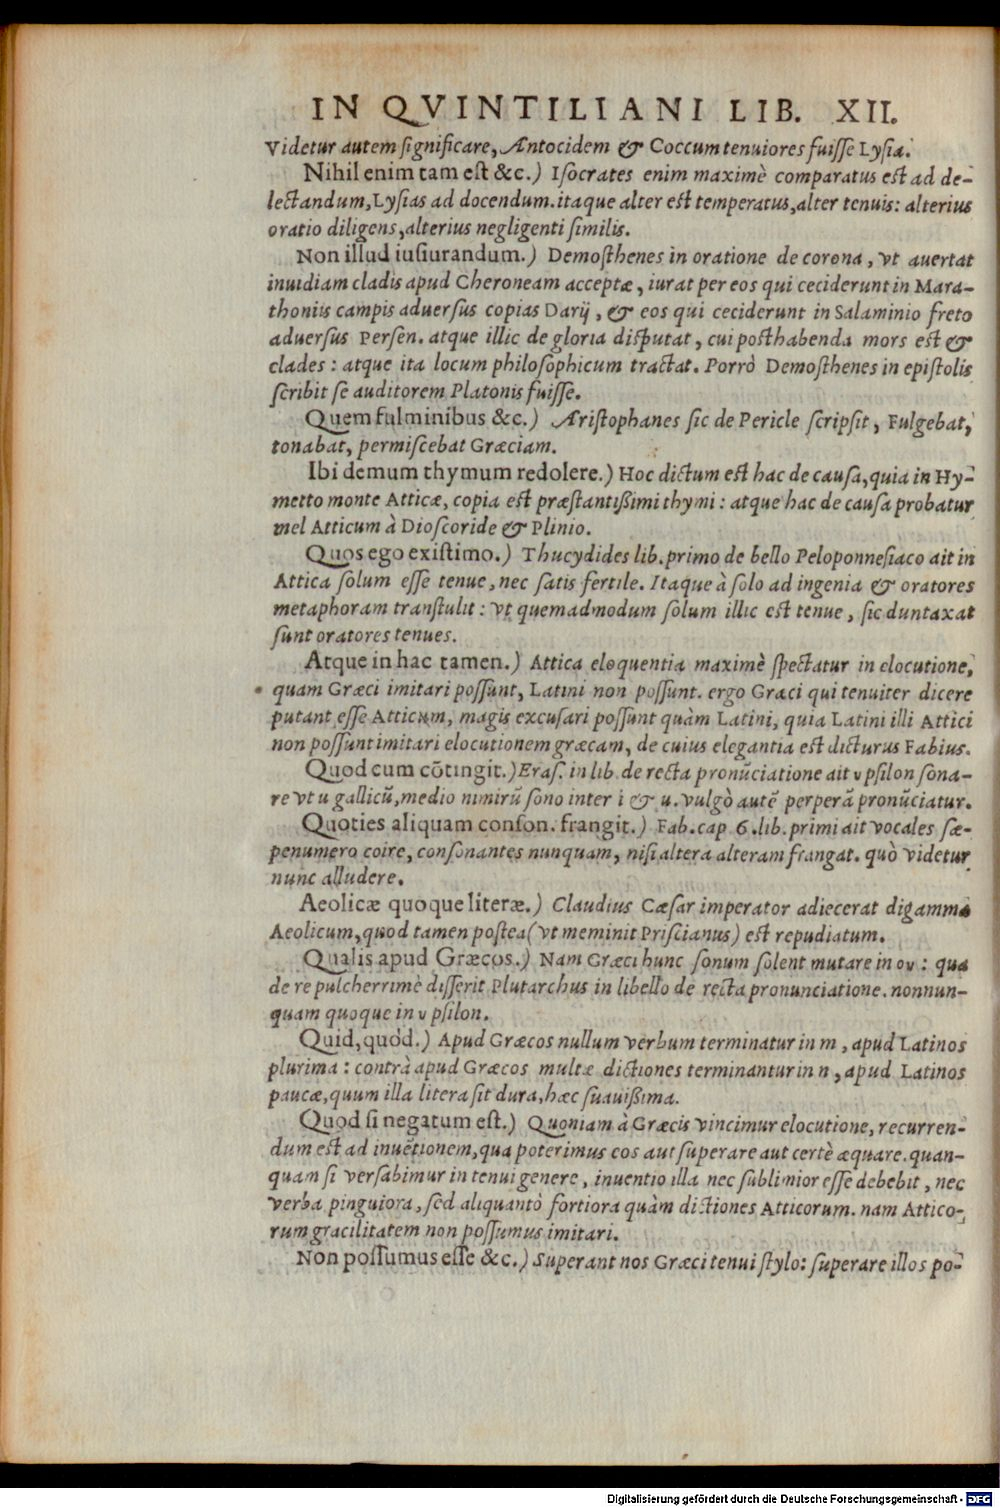 IN QVINTILIANI LIB. XII.
Videtur autem significare, Antocidem & Coccum tenuiores fuisse Lysia.
Nihil enim tam est &c.) Isocrates enim maximè comparatus est ad de-
lectandum, Lysias ad docendum. itaque alter est temperatus, alter tenuis: alterius
oratio diligens, alterius negligenti similis.
Non illud iusiurandum.) Demosthenes in oratione de corona, vt auertat
inuidiam cladis apud Cheroneam acceptæ, iurat per eos qui ceciderunt in Mara-
thoniis campis aduersus copias Darij, & eos qui ceciderunt in Salaminio freto
aduersus Persen. atque illic de gloria disputat, cui posthabenda mors est &
clades: atque ita locum philosophicum tractat. Porrò Demosthenes in epistolis
scribit se auditorem Platonis fuisse.
Quem fulminibus &c.) Aristophanes sic de Pericle scripsit, Fulgebat,
tonabat, permiscebat Græciam.
Ibi demum thymum redolere.) Hoc dictum est hac de causa, quia in Hy-
metto monte Atticæ, copia est præstantißimi thymi: atque hac de causa probatur
mel Atticum à Dioscoride & Plinio.
Quos ego existimo.) Thucydides lib. primo de bello Peloponnesiaco ait in
Attica solum esse tenue, nec satis fertile. Itaque à solo ad ingenia & oratores
metaphoram transtulit: vt quemadmodum solum illic est tenue, sic duntaxat
sunt oratores tenues.
Atque in hac tamen.) Attica eloquentia maximè spectatur in elocutione,
quam Græci imitari possunt, Latini non possunt. ergo Græci qui tenuiter dicere
putant esse Atticum, magis excusari possunt quàm Latini, quia Latini illi Attici
non possunt imitari elocutionem græcam, de cuius elegantia est dicturus Fabius.
Quod cum cõtingit.) Eras. in lib. de recta pronũciatione ait υ psilon sona-
re vt u gallicũ, medio nimirũ sono inter i & u. vulgò autẽ perperã pronũciatur.
Quoties aliquam conson. frangit.) Fab. cap 6. lib. primi ait vocales sæ-
penumero coire, consonantes nunquam, nisi altera alteram frangat. quò videtur
nunc alludere.
Aeolicæ quoque literæ.) Claudius Cæsar imperator adiecerat digamma
Aeolicum, quod tamen postea (vt meminit Priscianus) est repudiatum.
Qualis apud Græcos.) Nam Græci hunc sonum solent mutare in ου: qua
de re pulcherrimè disserit Plutarchus in libello de recta pronunciatione. nonnun-
quam quoque in υ psilon.
Quid, quòd.) Apud Græcos nullum verbum terminatur in m, apud Latinos
plurima: contrà apud Græcos multæ dictiones terminantur in n, apud Latinos
paucæ, quum illa litera sit dura, hæc suauißima.
Quod si negatum est.) Quoniam à Græcis vincimur elocutione, recurren-
dum est ad inuẽtionem, qua poterimus eos aut superare aut certè æquare. quan-
quam si versabimur in tenui genere, inuentio illa nec sublimior esse debebit, nec
verba pinguiora, sed aliquantò fortiora quàm dictiones Atticorum. nam Attico-
rum gracilitatem non possumus imitari.
Non possumus esse &c.) Superant nos Græci tenui stylo: superare illos po-
Digitalisierung gefördert durch die Deutsche Forschungsgemeinschaft - DFG